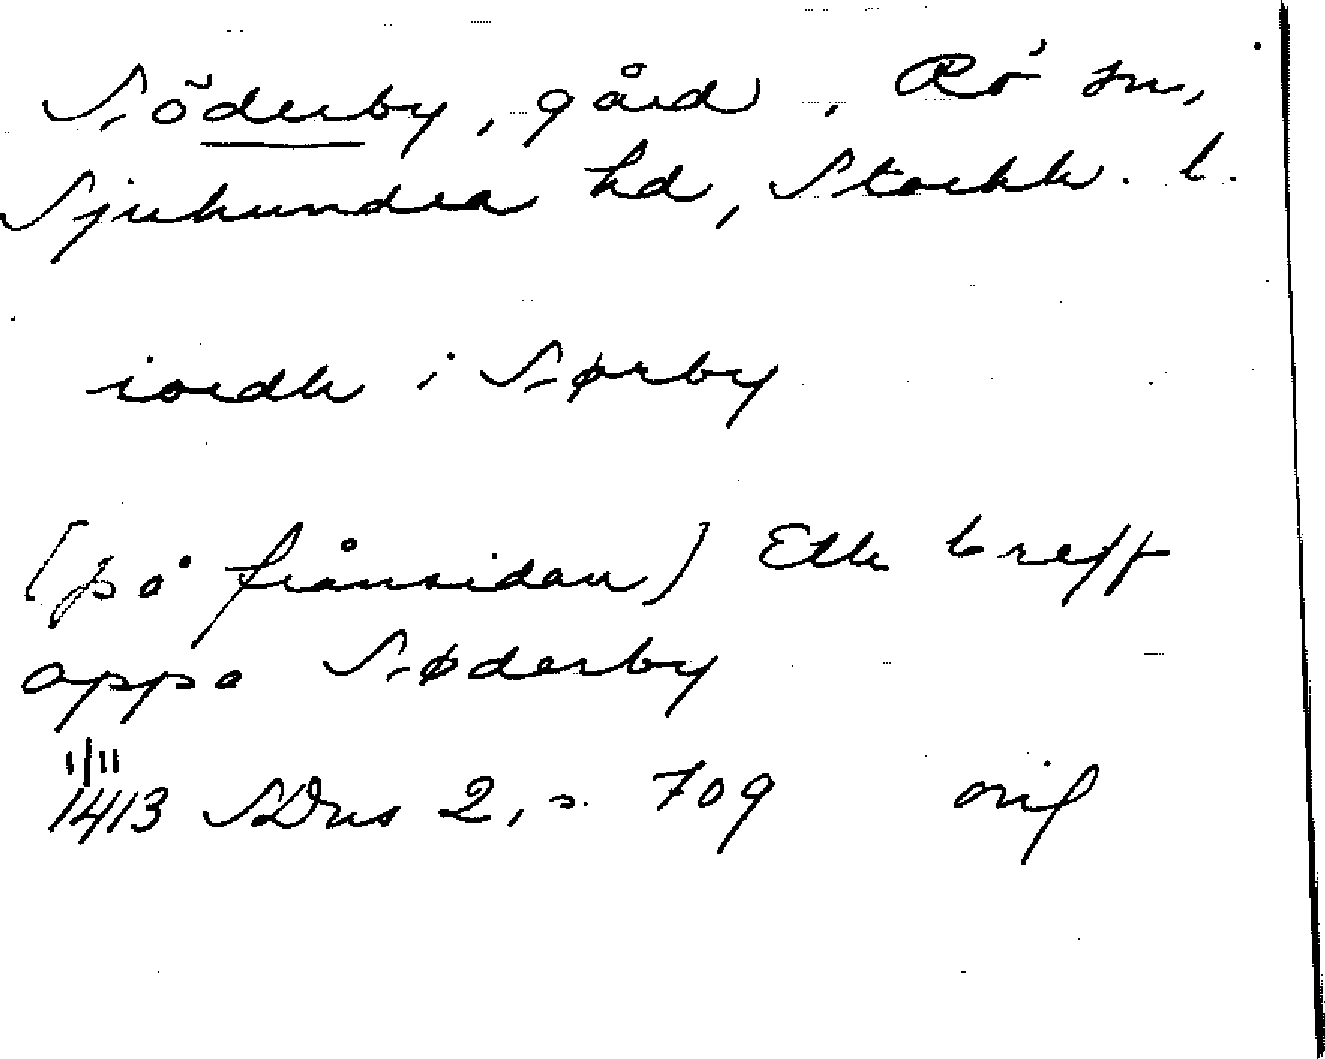 Söderby, gård, Rö sn,
Sjuhundra hd, Stockh. l.
iordh i Sørby
[på frånsidan] Eth breff
oppa Søderby
1/11
1413 SDns 2, s. 709 orig